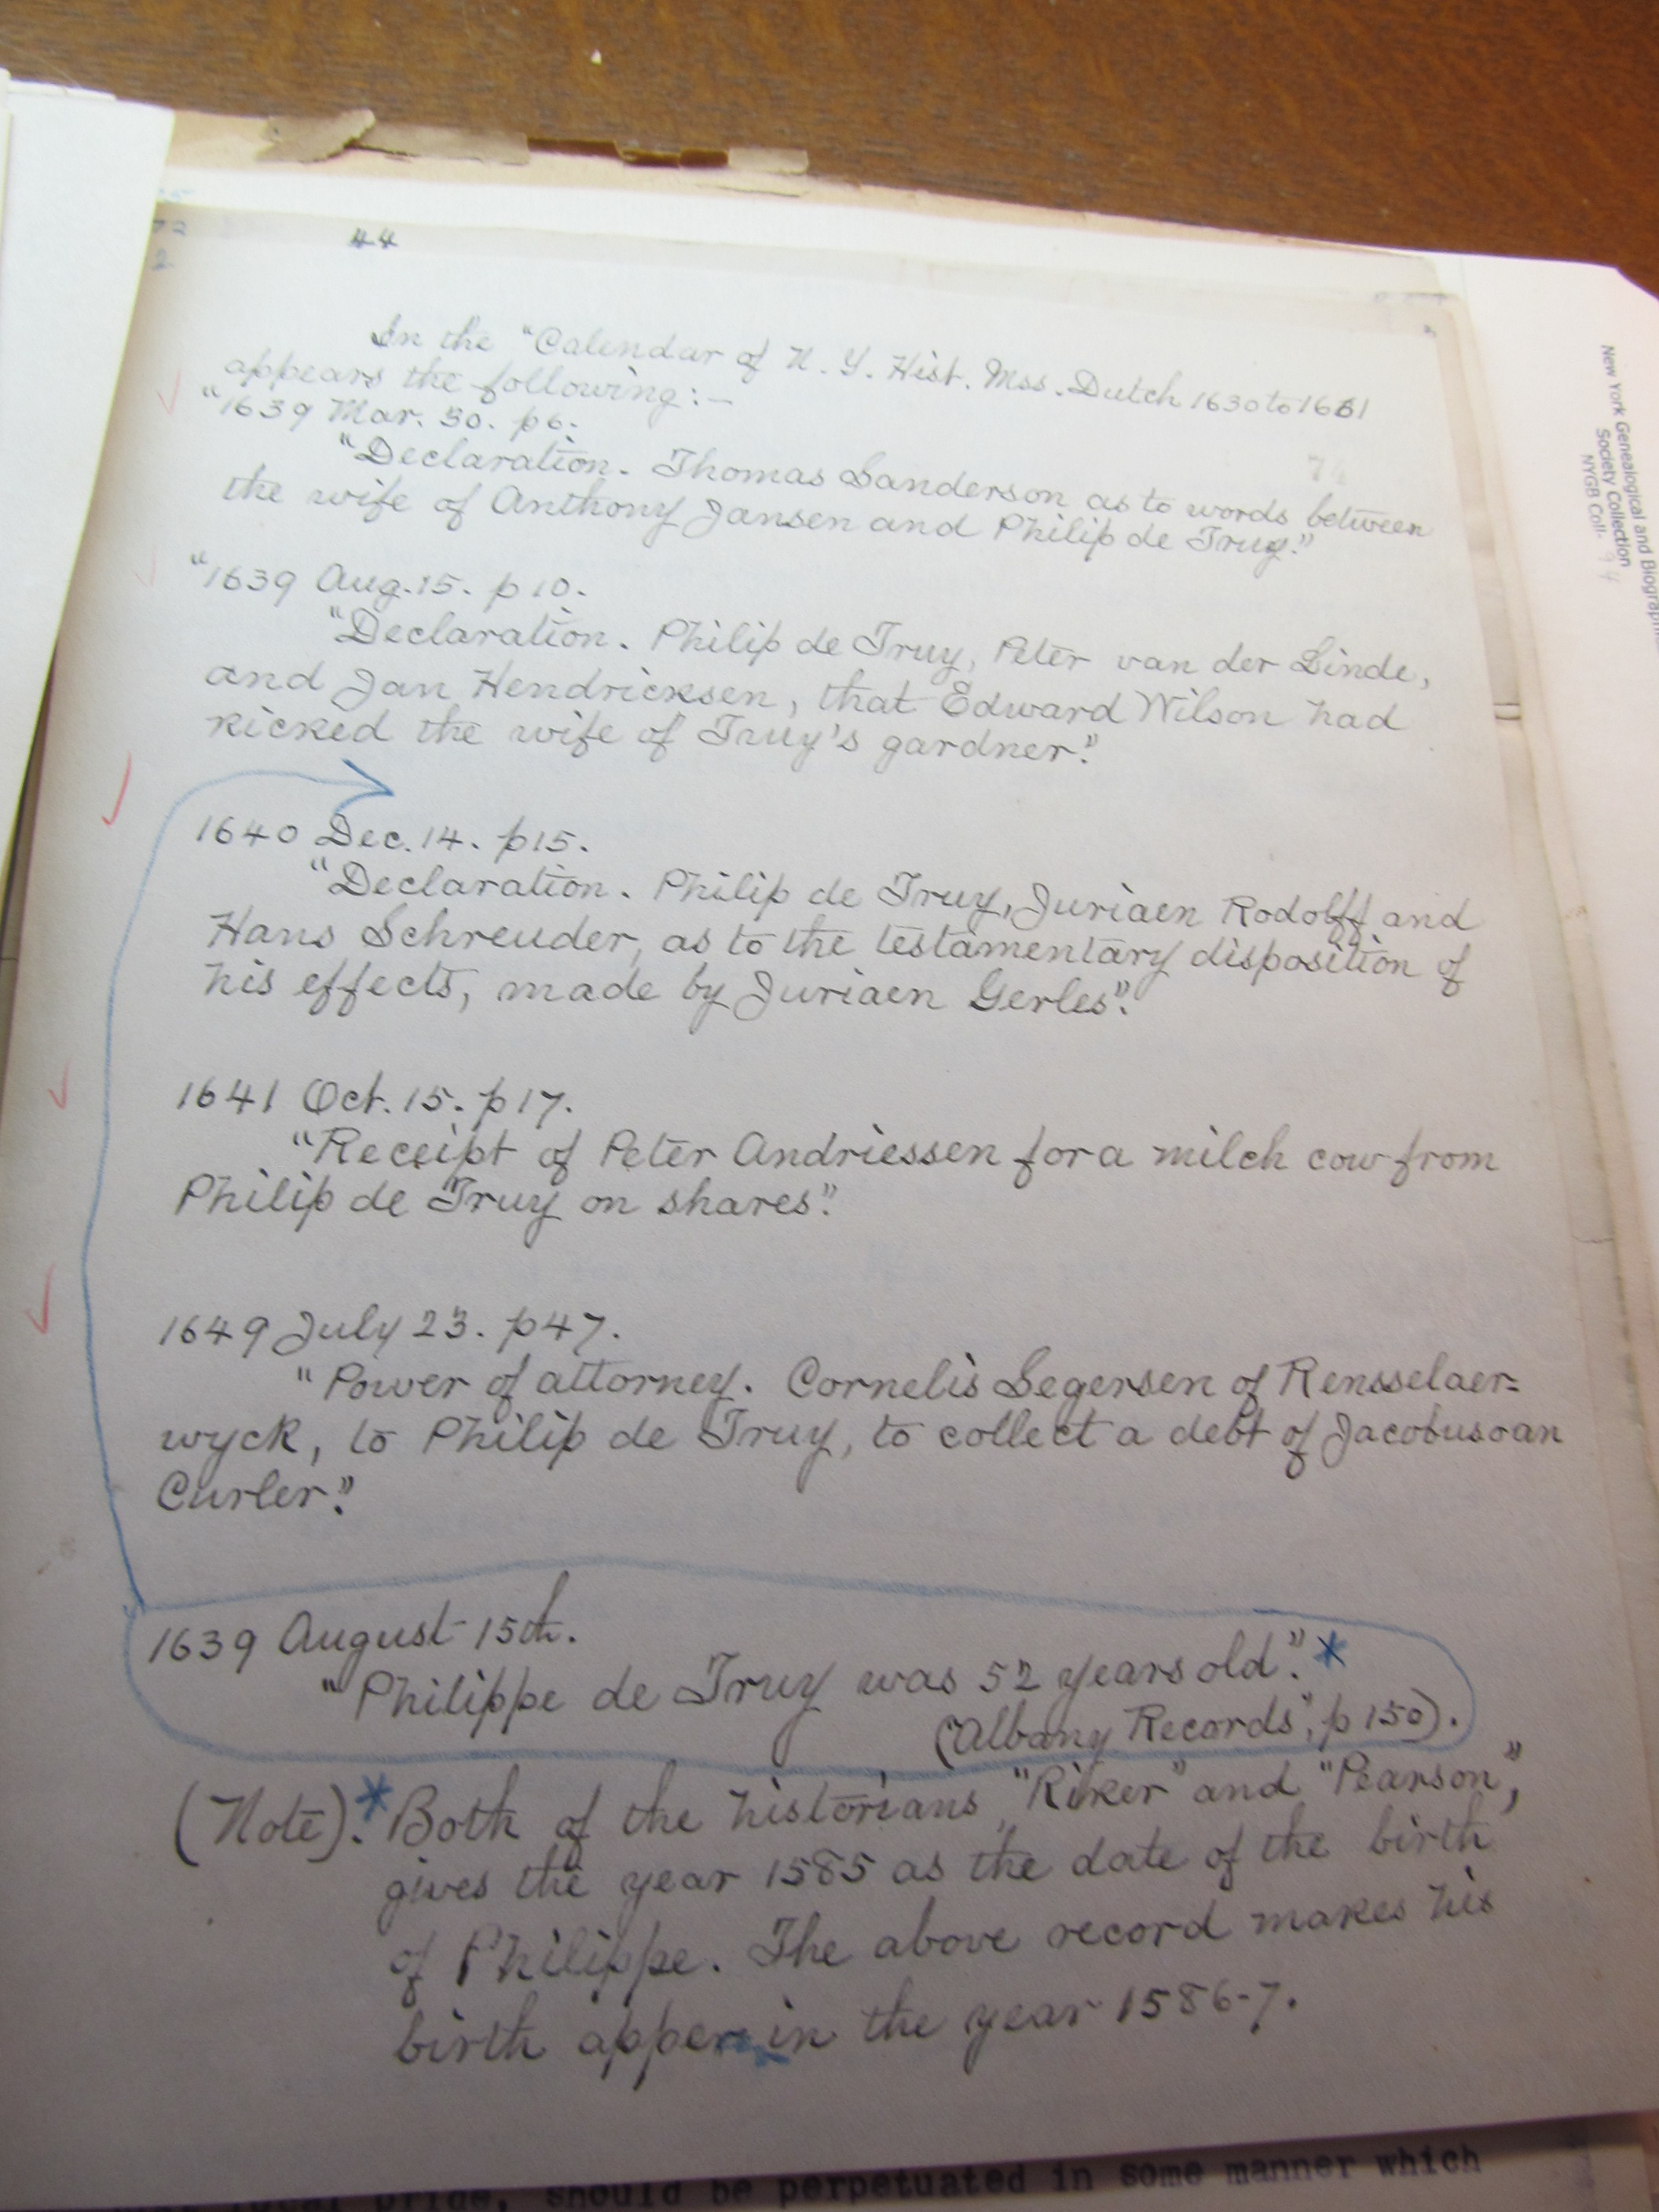 44
In the "Calendar of N. Y. Hist. Mss. Dutch 1630 to 1681
appears the following:—
"1639 Mar. 30. p6.
"Declaration. Thomas Sanderson as to words between
the wife of Anthony Jansen and Philip de Truy."
"1639 Aug. 15. p 10.
"Declaration. Philip de Truy, Peter van der Linde,
and Jan Hendricksen, that Edward Wilson had
kicked the wife of Truy's gardner."
1640 Dec. 14. p15.
"Declaration. Philip de Truy, Juriaen Rodolff and
Hans Schreuder, as to the testamentary disposition of
his effects, made by Juriaen Gerles".
1641 Oct. 15. p17.
"Receipt of Peter Andriessen for a milch cow from
Philip de Truy on shares".
1649 July 23. p47.
"Power of attorney. Cornelis Segersen of Rensselaer=
wyck, to Philip de Truy, to collect a debt of Jacobus van
Curler."
1639 August 15th.
"Philippe de Truy was 52 years old".*
("Albany Records", p 150).
(Note).* Both of the historians, "Riker" and "Pearson",
gives the year 1585 as the date of the birth
of Philippe. The above record makes his
birth apper in the year 1586-7.
New York Genealogical and Biograph
Society Collection
NYGB Coll. 94
pride, should be perpetuated in some manner which